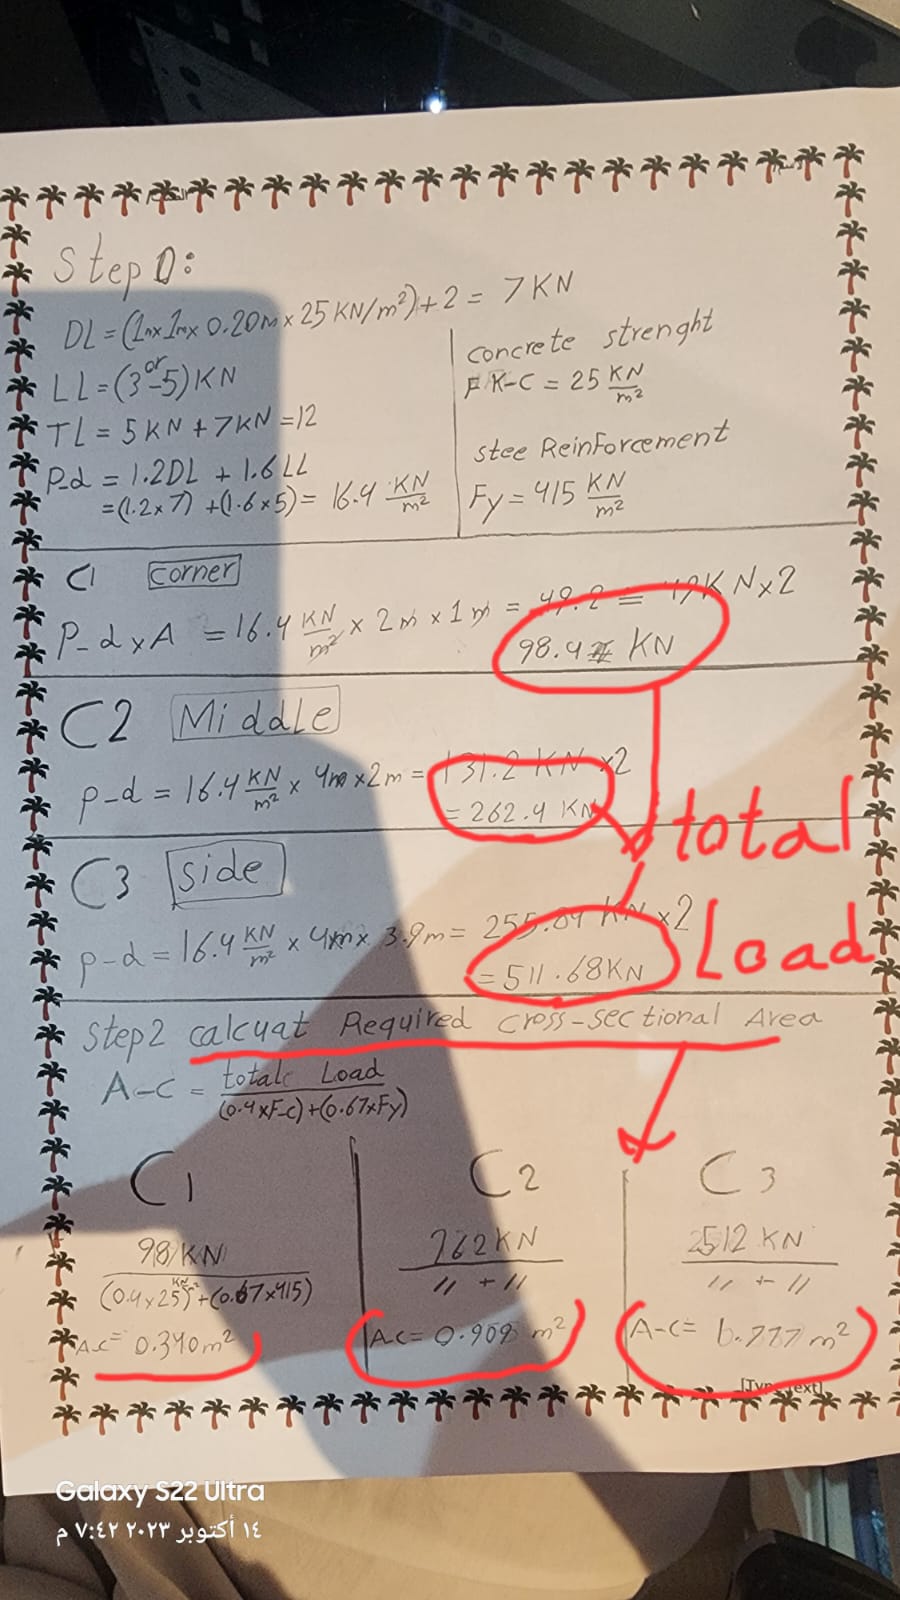 Step 1:
DL = (1m x 1m x 0.20m x 25 KN/m²) + 2 = 7 KN
LL = (3 or 5) KN
TL = 5 KN + 7 KN = 12
P-d = 1.2DL + 1.6LL
= (1.2 x 7) + (1.6 x 5) = 16.4 KN/m²
concrete strenght
F K-C = 25 KN/m²
stee Reinforcement
Fy = 415 KN/m²
C1 corner
P-d x A = 16.4 KN/m² x 2m x 1m = 49.2 = 49 KN x 2
98.4 KN
C2 Middle
P-d = 16.4 KN/m² x 4m x 2m = 131.2 KN x 2
= 262.4 KN
total
C3 side
P-d = 16.4 KN/m² x 4m x 3.9m = 255.84 KN x 2
= 511.68 KN
Load
Step 2 calcuat Required cross-sectional Area
A-C = total Load
(0.4 x F-c) + (0.67 x Fy)
C1 C2 C3
98 KN
(0.4 x 25) + (0.67 x 415)
Ac = 0.340 m²
262 KN
// + //
Ac = 0.908 m²
512 KN
// + //
A-c =
m²
Galaxy S22 Ultra
١٤ أكتوبر ٢٠٢٣ ٧:٤٢ م